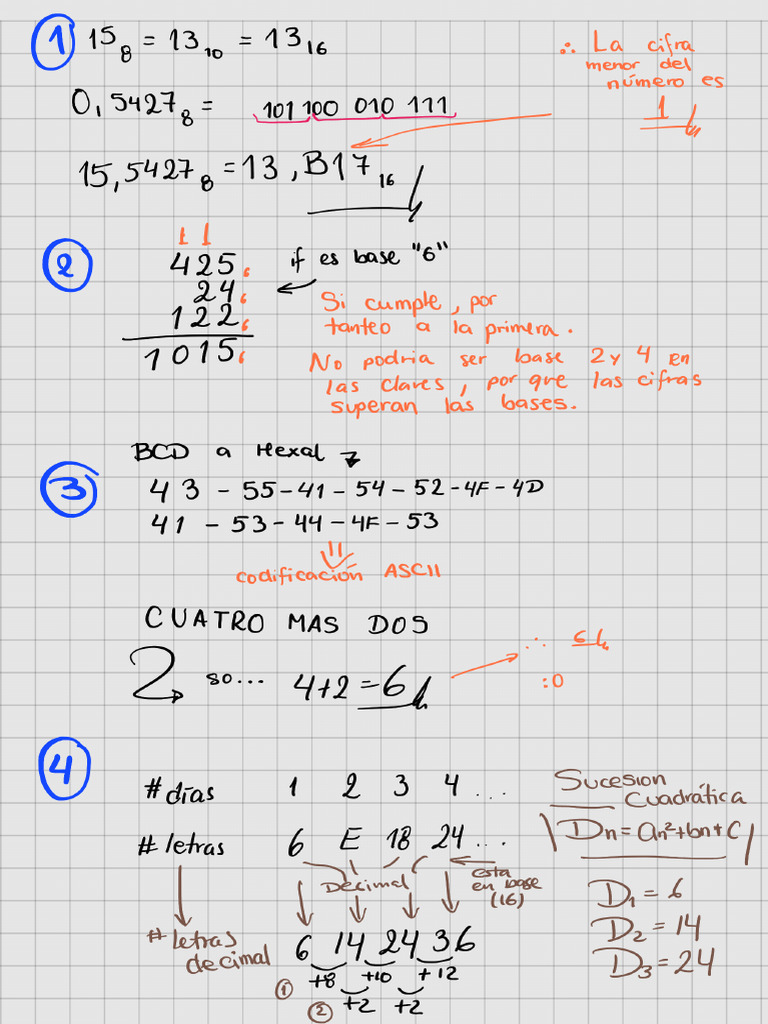 1 15₈ = 13₁₀ = 13₁₆
∴ La cifra
menor del
número es
1
0,5427₈ = 101 100 010 111
15,5427₈ = 13,B17₁₆
2
1 1
425₆ if es base "6"
24₆
122₆
1015₆
Si cumple, por
tanteo a la primera.
No podria ser base 2 y 4 en
las claves, por que las cifras
superan las bases.
3
BCD a Hexal
43 - 55 - 41 - 54 - 52 - 4F - 4D
41 - 53 - 44 - 4F - 53
codificación ASCII
CUATRO MAS DOS
so... 4+2 = 6
∴ 6
:0
4
# días 1 2 3 4 ...
# letras 6 E 18 24 ...
Decimal
esta
en base
(16)
# letras
decimal 6 14 24 36
+8 +10 +12
1
2 +2 +2
Sucesion
Cuadrática
Dn = an²+bn+C
D₁ = 6
D₂ = 14
D₃ = 24